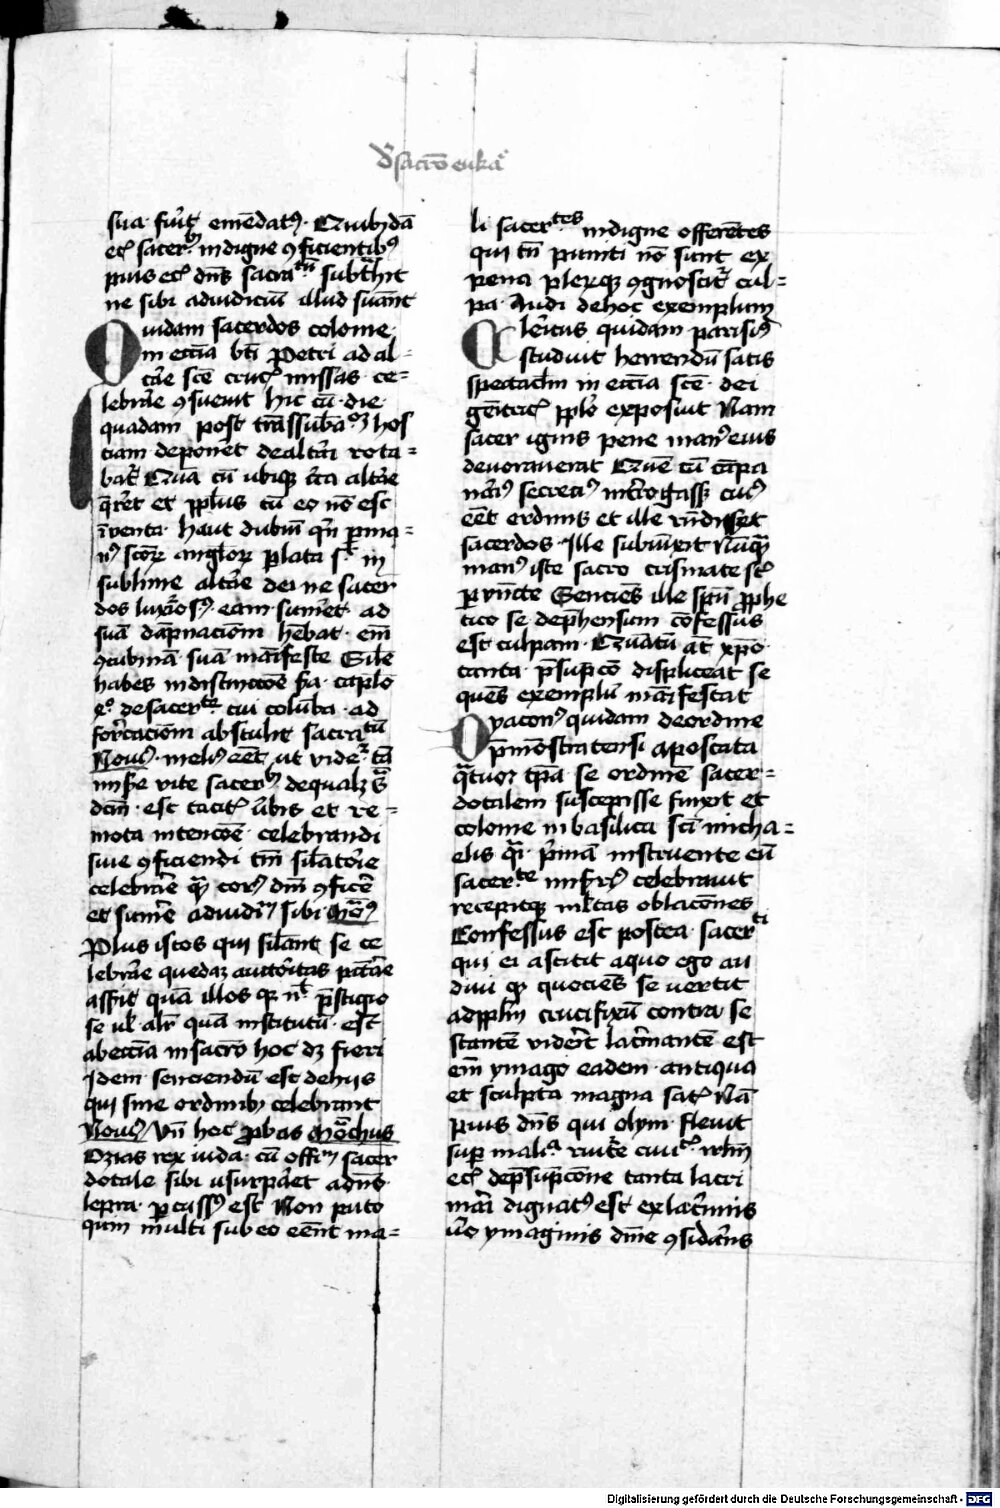 De sacro euka
sua fuit emēdatꝰ Quibꝰdā
eciā sacerbꝰ indigne ꝯficientibꝰ
pius eciā dn̄s sacramtū subtͣhit
ne sibi adiudiciū illud sumāt
Quidam sacerdos colonie
in ecc̄ia bt̄i Petri ad al=
tare sc̄e crucꝭ missas ce=
lebrare ꝯsueuit hic cū die
quadam post trāssubaͦꝫ hos
tiam deponeret de altari rota=
batͬ Quā cū ubiqꝫ circa altare
q̄reret et ppl̄us cū eo nō est
īuenta haut dubiū qn̄ p manꝰ
sc̄oꝝ angl̄oꝝ plata sit in
sublime altare dei ne sacer
dos luxͥosꝰ eam sumeret ad
suā dāpnaciōem h̄ebat em̄
ꝯcubinā suā manifeste Sil̄e
habes in distinctiōe p̄a capl̄o
xͦ de sacerte cui colūba ad
fortaciōem abstulit sacramtū
Nouicꝰ melꝰ eēt ut videtͬ tā
infirme vite sacerbꝰ de qualꝫ sͣ
dc̄m est tacitꝭ ūbis et re=
mota intenciōe celebrandi
siue ꝯficiendi tm̄ silatorie
celebrare qͣꝫ corpꝰ dn̄i ꝯficere
et sumere ad iudiciū sibi Mōchꝰ
Plus istos qui sil̄ant se ce
lebrare quedaꝫ auctoritas puitate
asserit quā illos
se ul̄ alr̄ quā institutū est
ab ecc̄ia in sacro hoc dꝫ fieri
Idem senciendū est de hijs
qui sine ordinibꝰ celebrant
Nouicꝰ Vn̄ hoc probas Mōchus
Ozias rex iuda cū offm̄ sacer
dotale sibi usurparet a dn̄o
lepra ꝑcussꝰ est Non puto
quin multi sub eo eēnt ma=
li sacertes indigne offerētes
qui tn̄ puniti nō sunt ex
pena plerūqꝫ ꝯgnoscitͬ cul=
pa Audi de hoc exemplum
Clericus quidam parisiꝰ
studuit herrendū satis
spectaclm̄ in ecc̄ia sc̄e dei
genitcͥꝭ ppl̄o exposuit Nam
sacer ignis pene manꝰ eius
deuorauerat Quē cū cāpa
nariꝰ secreciꝰ int̄rogassꝫ cuiꝰ
eēt ordinis et ille rn̄disset
sacerdos Ille subiūxit Nūqͣꝫ
manꝰ iste sacro crismate sͭ
ꝑuncte Senciēs ille spū prophe
tico se dep̄hensum confessus
est culpam Quātū at̄ xp̄o
tanta p̄supcō displiceāt se
quēs exemplū manifestat
Dyaconꝰ quidam de ordine
p̄mōstratensi apostata
qͣtuor tp̄a se ordinē sacer=
dotalem suscepisse finxit et
colonie in basilica sc̄i micha=
elis qͣi primā instruente eū
sacerte infirmꝰ celebrauit
recepitqꝫ mͭltas oblacōnes
Confessus est postea sacerti
qui ei astitit a quo ego au
diui qꝫ quociēs se uertit
ad pplm̄ crucifixū contra se
stantē viderit lacrimantē est
em̄ ymago eadem antiqua
et sculpta magna satꝭ Nā
pius dn̄s qui olym fleuit
supͬ maliͣ
eciā dep̄supcōne tanta lacri
mari dignatꝰ est ex lacrimis
ūo ymaginis dīne ꝯsiderās
Digitalisierung gefördert durch die Deutsche Forschungsgemeinschaft - DFG